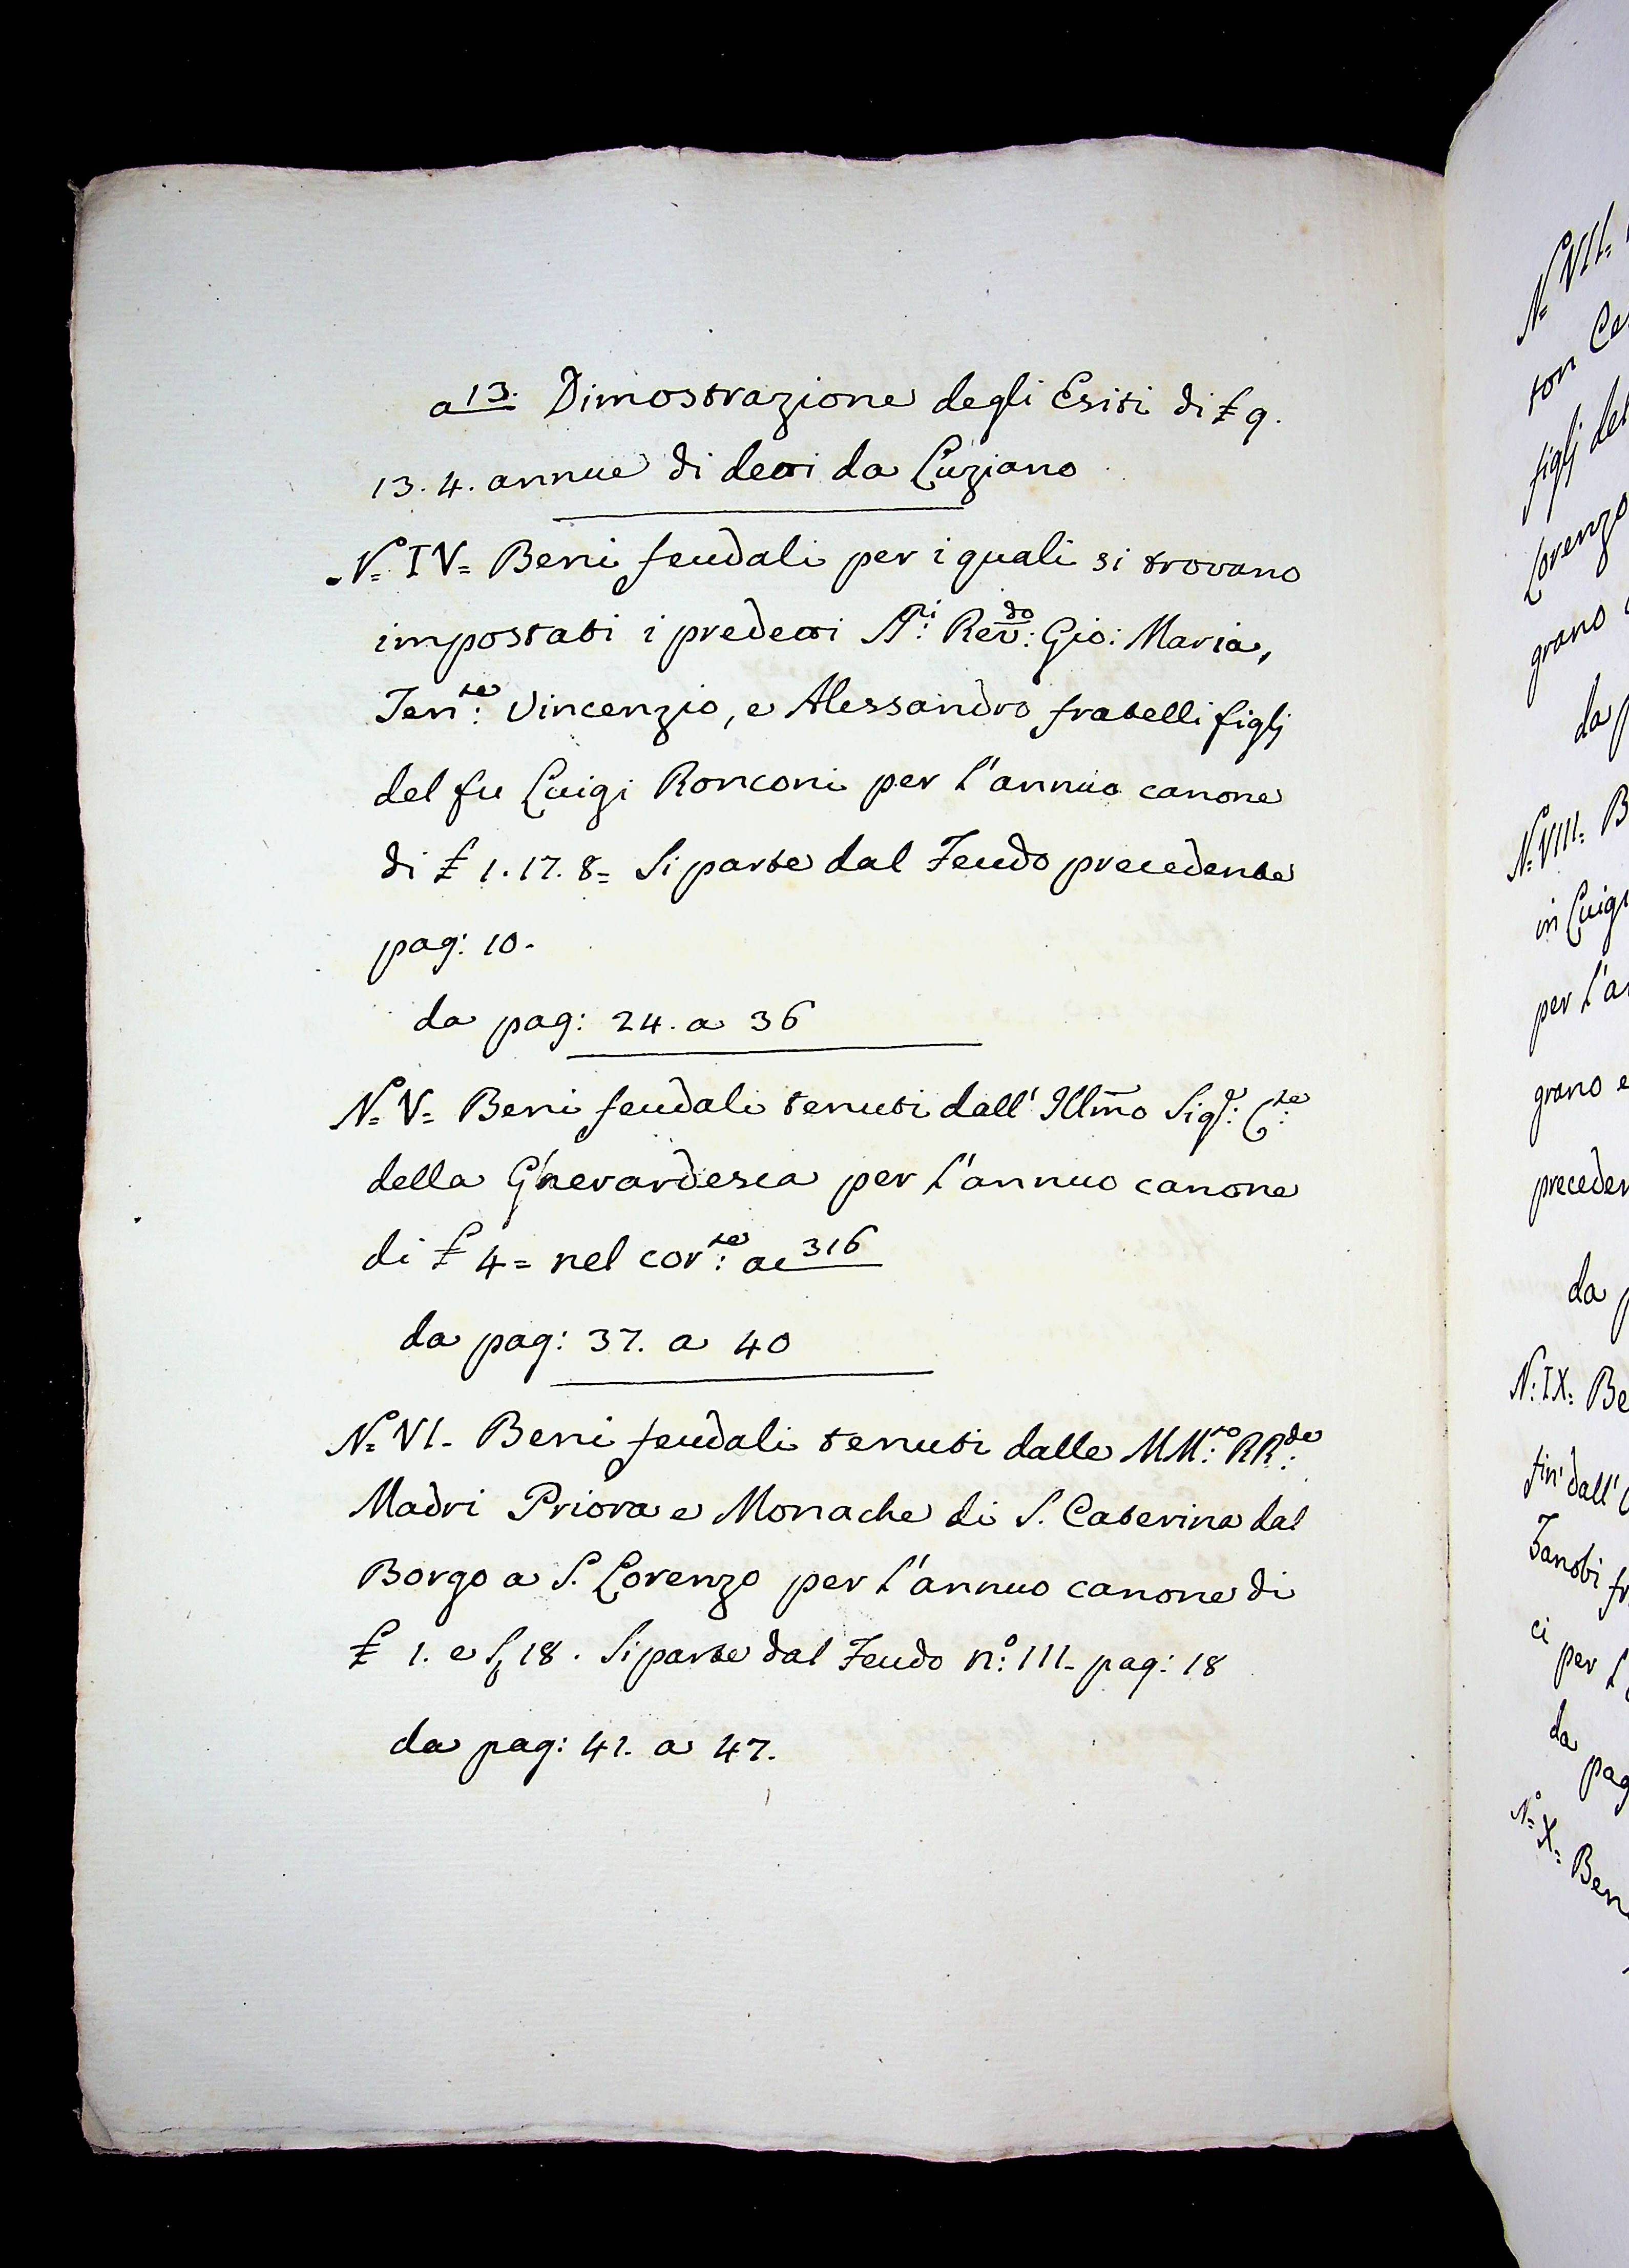 a 13. Dimostrazione degli Esiti di £ 9.
13. 4. annue di detti da Luziano
N.º IV= Beni feudali per i quali si trovano
impostati i predetti A.ri Rev.do: Gio: Maria,
Ten.te: Vincenzio, e Alessandro fratelli figlj
del fu Luigi Ronconi per l'annuo canone
di £ 1. 17. 8= Si parte dal Feudo precedente
pag: 10.
da pag: 24. a 36
N.º V= Beni feudali tenuti dall' Illmo Sigr: C.te:
della Gherardesca per l'annuo canone
di £ 4= nel cor.te: a 316
da pag: 37. a 40
N.º VI- Beni feudali tenuti dalle MM.to: RR.de:
Madri Priora e Monache di S. Caterina dal
Borgo a S. Lorenzo per l'annuo canone di
£ 1. e S, 18. Si parte dal Feudo n.º: III- pag: 18
da pag: 41. a 47.
N.º VII=
figlj del
Lorenzo
grano
da p
N.º VIII= B
in Luigi
per l'a
grano e
preceden
da p
N: IX: Be
fin' dall'
Zanobi fr
ci per l
da pag
N.º X= Ben